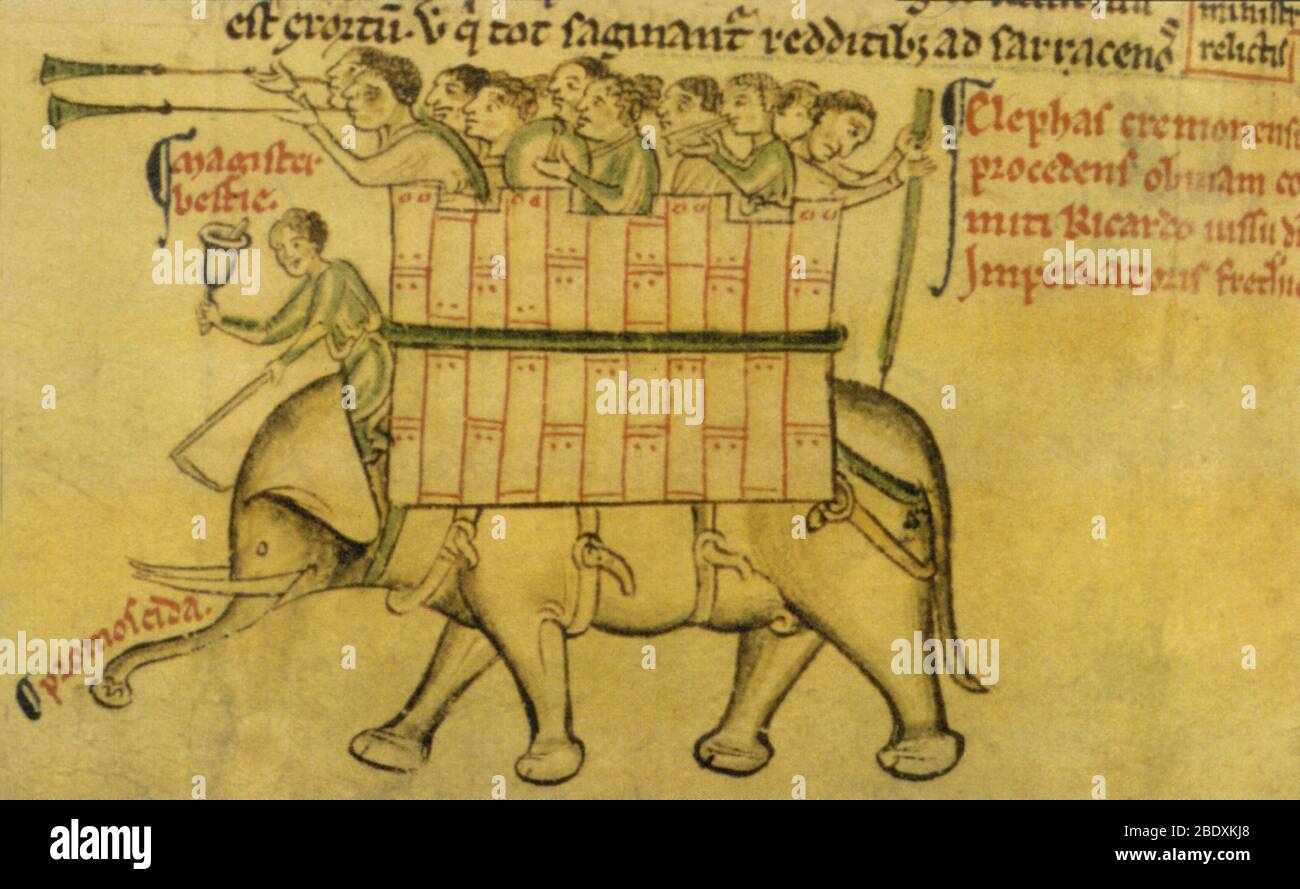 est exortū. v q̄ tot saginant̄ redditibꝫ ad sarracenos
ministr
relictis
magister
bestie.
Elephas cremonensis
procedens obuiam co
miti Ricardo iussu d
Imperatoris frethe
promoscida.
alamy
alamy
Image ID: 2BDXKJ8
www.alamy.com